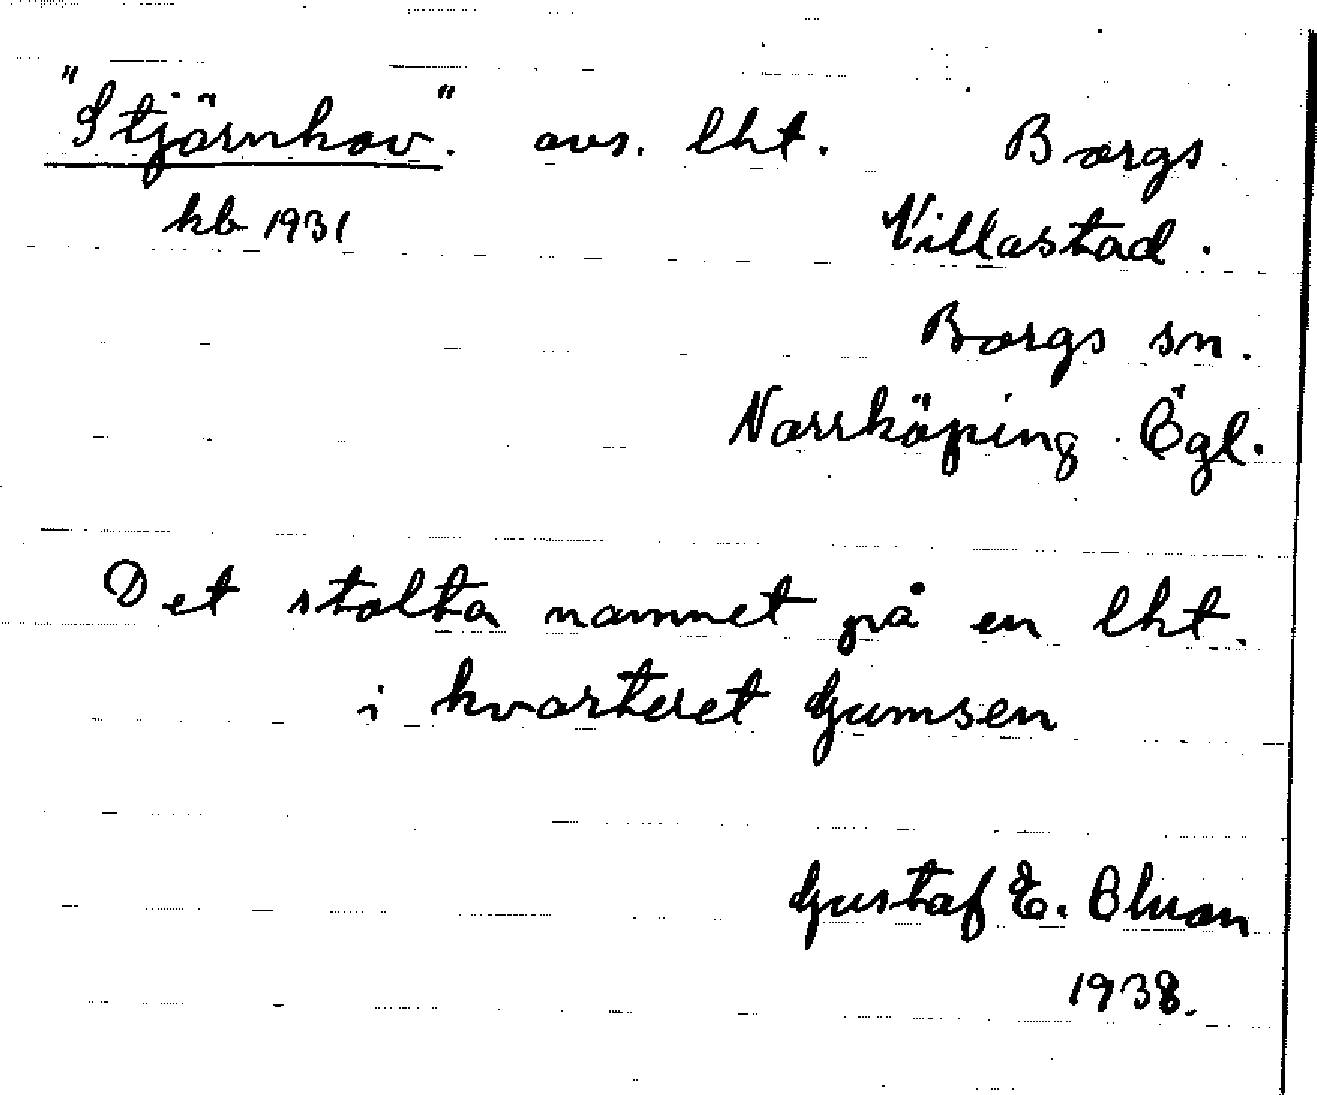 "Stjärnhov". avs. lht. Borgs
kb 1931 Villastad.
Borgs sn.
Norrköping Ögl.
Det stolta namnet på en lht.
i kvarteret Gumsen
Gustaf E. Olsson
1938.